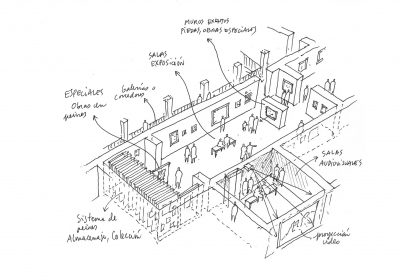 MUROS EXENTOS
PIEZAS, OBRAS ESPECIALES
SALAS
EXPOSICIÓN
ESPECIALES
Obras en
peines
Galerías o
corredores
SALAS
AUDIOVISUALES
Sistema de
peines
Almacenaje, Colección
proyección
video